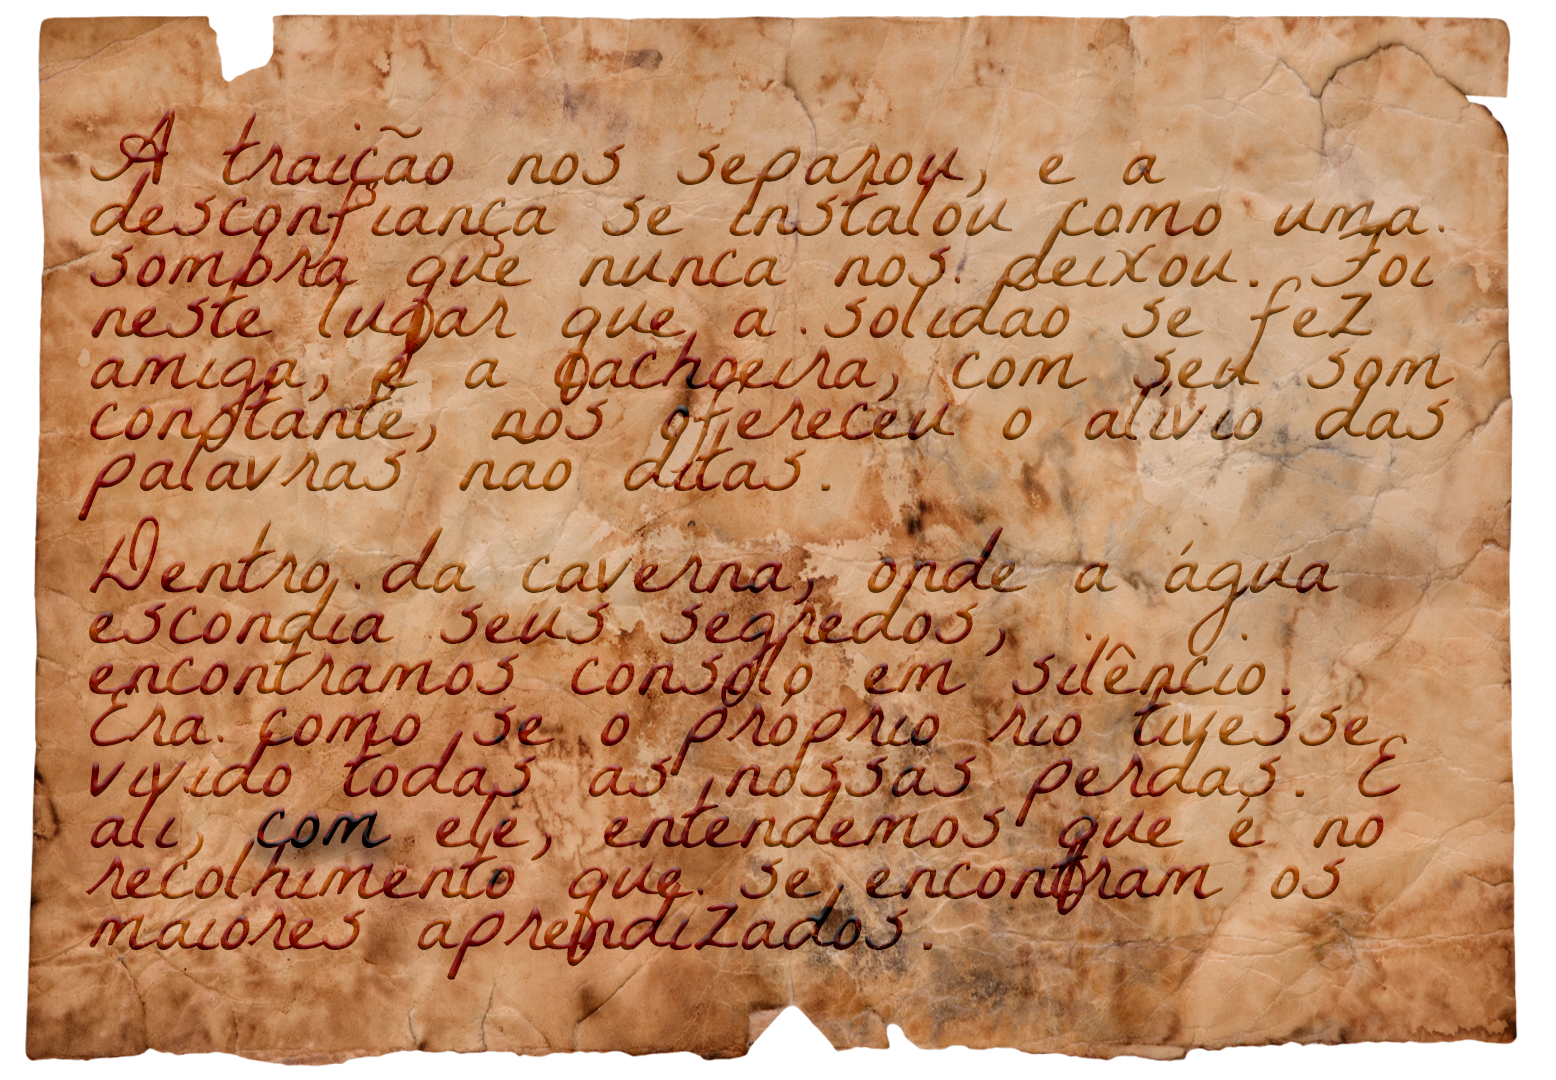 A traição nos separou, e a
desconfiança se instalou como uma
sombra que nunca nos deixou. Foi
neste lugar que a solidao se fez
amiga, e a cachoeira, com seu som
constante, nos ofereceu o alívio das
palavras nao ditas.
Dentro da caverna, onde a água
escondia seus segredos,
encontramos consolo em silêncio.
Era como se o próprio rio tivesse
vivido todas as nossas perdas. E
ali, com ele, entendemos que é no
recolhimento que se encontram os
maiores aprendizados.